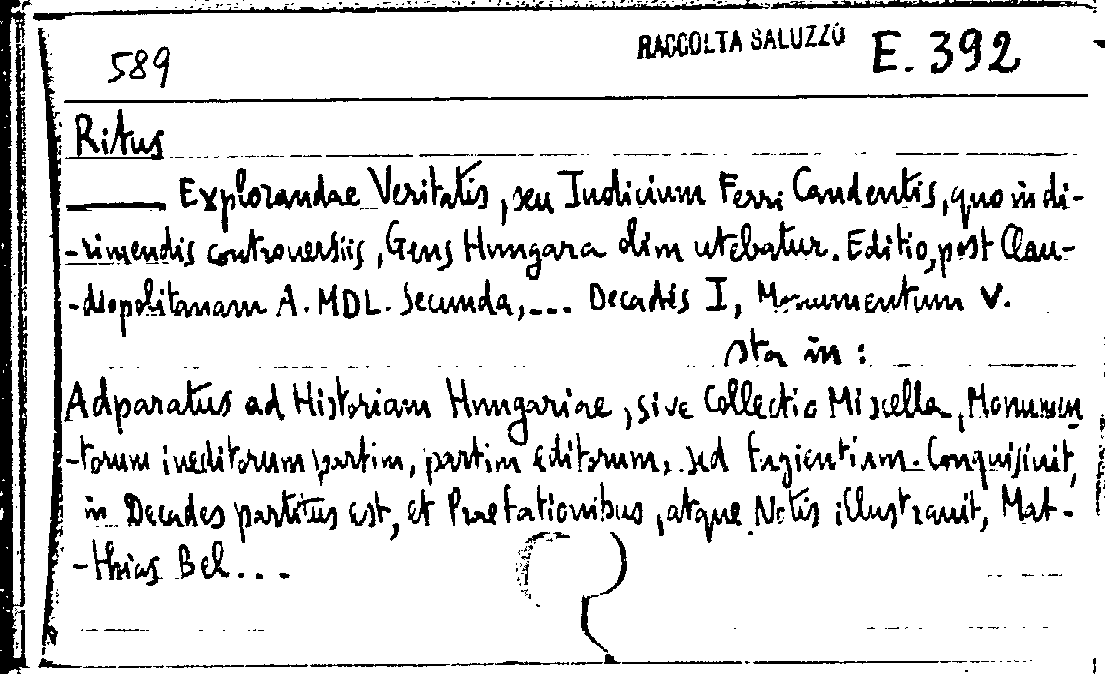 589 RACCOLTA SALUZZO E. 392
Ritus
——— Explorandae Veritatis, seu Iudicium Ferri Candentis, quo in di-
-rimendis controversiis, Gens Hungara olim utebatur. Editio, post Clau-
-diopolitanam A. MDL. Secunda,... Decadis I, Monumentum V.
sta in:
Adparatus ad Historiam Hungariae, sive Collectio Miscella, Monumen
-torum ineditorum partim, partim editorum, sed fugientium. Conquisiuit,
in Decades partitus est, et Praefationibus, atque Notis illustrauit, Mat-
-thias Bel...